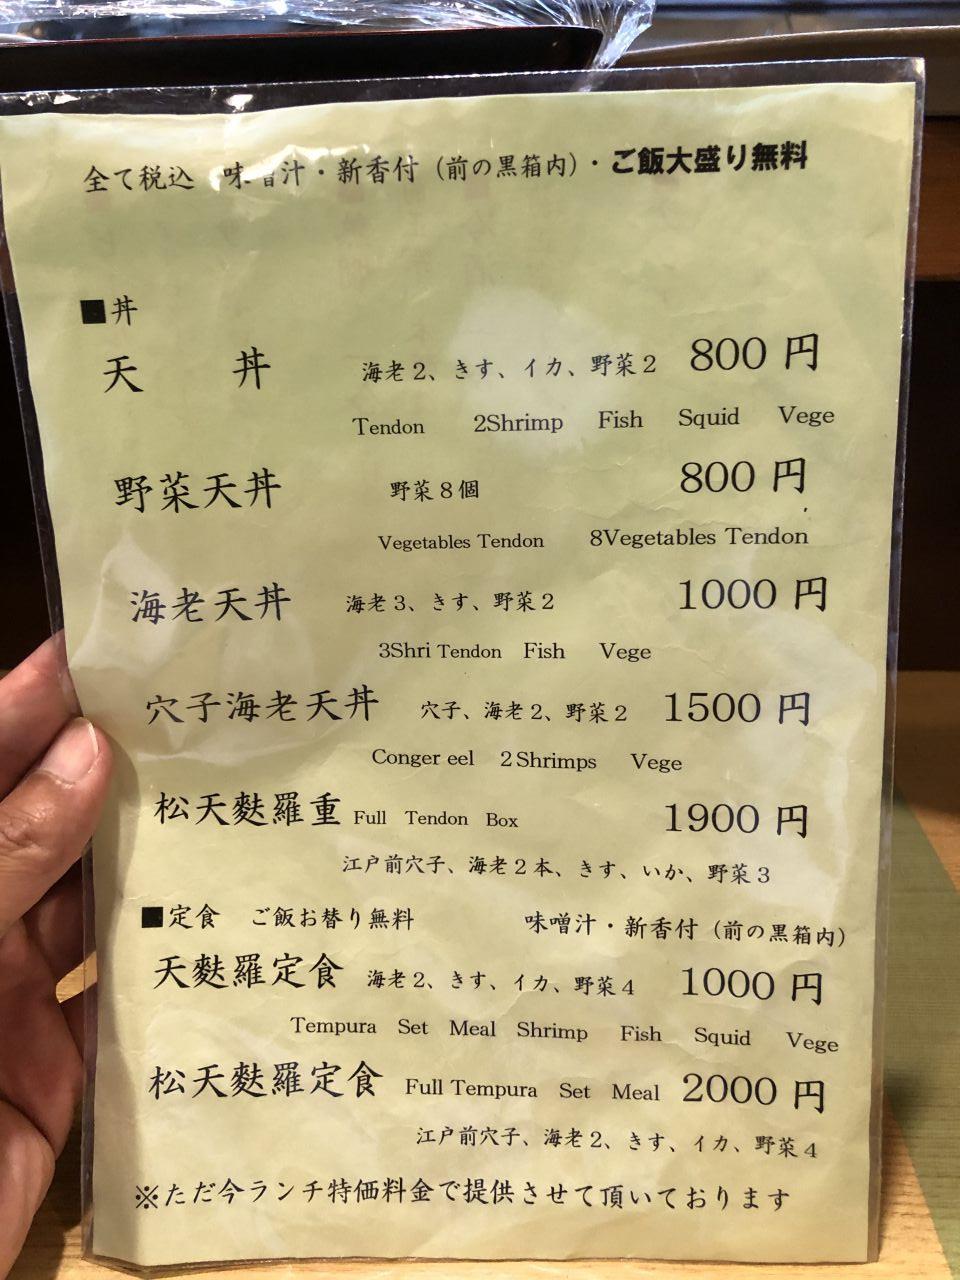 全て税込 味噌汁・新香付（前の黒箱内）・ご飯大盛り無料
■丼
天 丼 海老2、きす、イカ、野菜2 800 円
Tendon 2Shrimp Fish Squid Vege
野菜天丼 野菜8個 800 円
Vegetables Tendon 8Vegetables Tendon
海老天丼 海老3、きす、野菜2 1000 円
3Shri Tendon Fish Vege
穴子海老天丼 穴子、海老2、野菜2 1500 円
Conger eel 2Shrimps Vege
松天麩羅重 Full Tendon Box 1900 円
江戸前穴子、海老2本、きす、いか、野菜3
■定食 ご飯お替り無料 味噌汁・新香付（前の黒箱内）
天麩羅定食 海老2、きす、イカ、野菜4 1000 円
Tempura Set Meal Shrimp Fish Squid Vege
松天麩羅定食 Full Tempura Set Meal 2000 円
江戸前穴子、海老2、きす、イカ、野菜4
※ただ今ランチ特価料金で提供させて頂いております